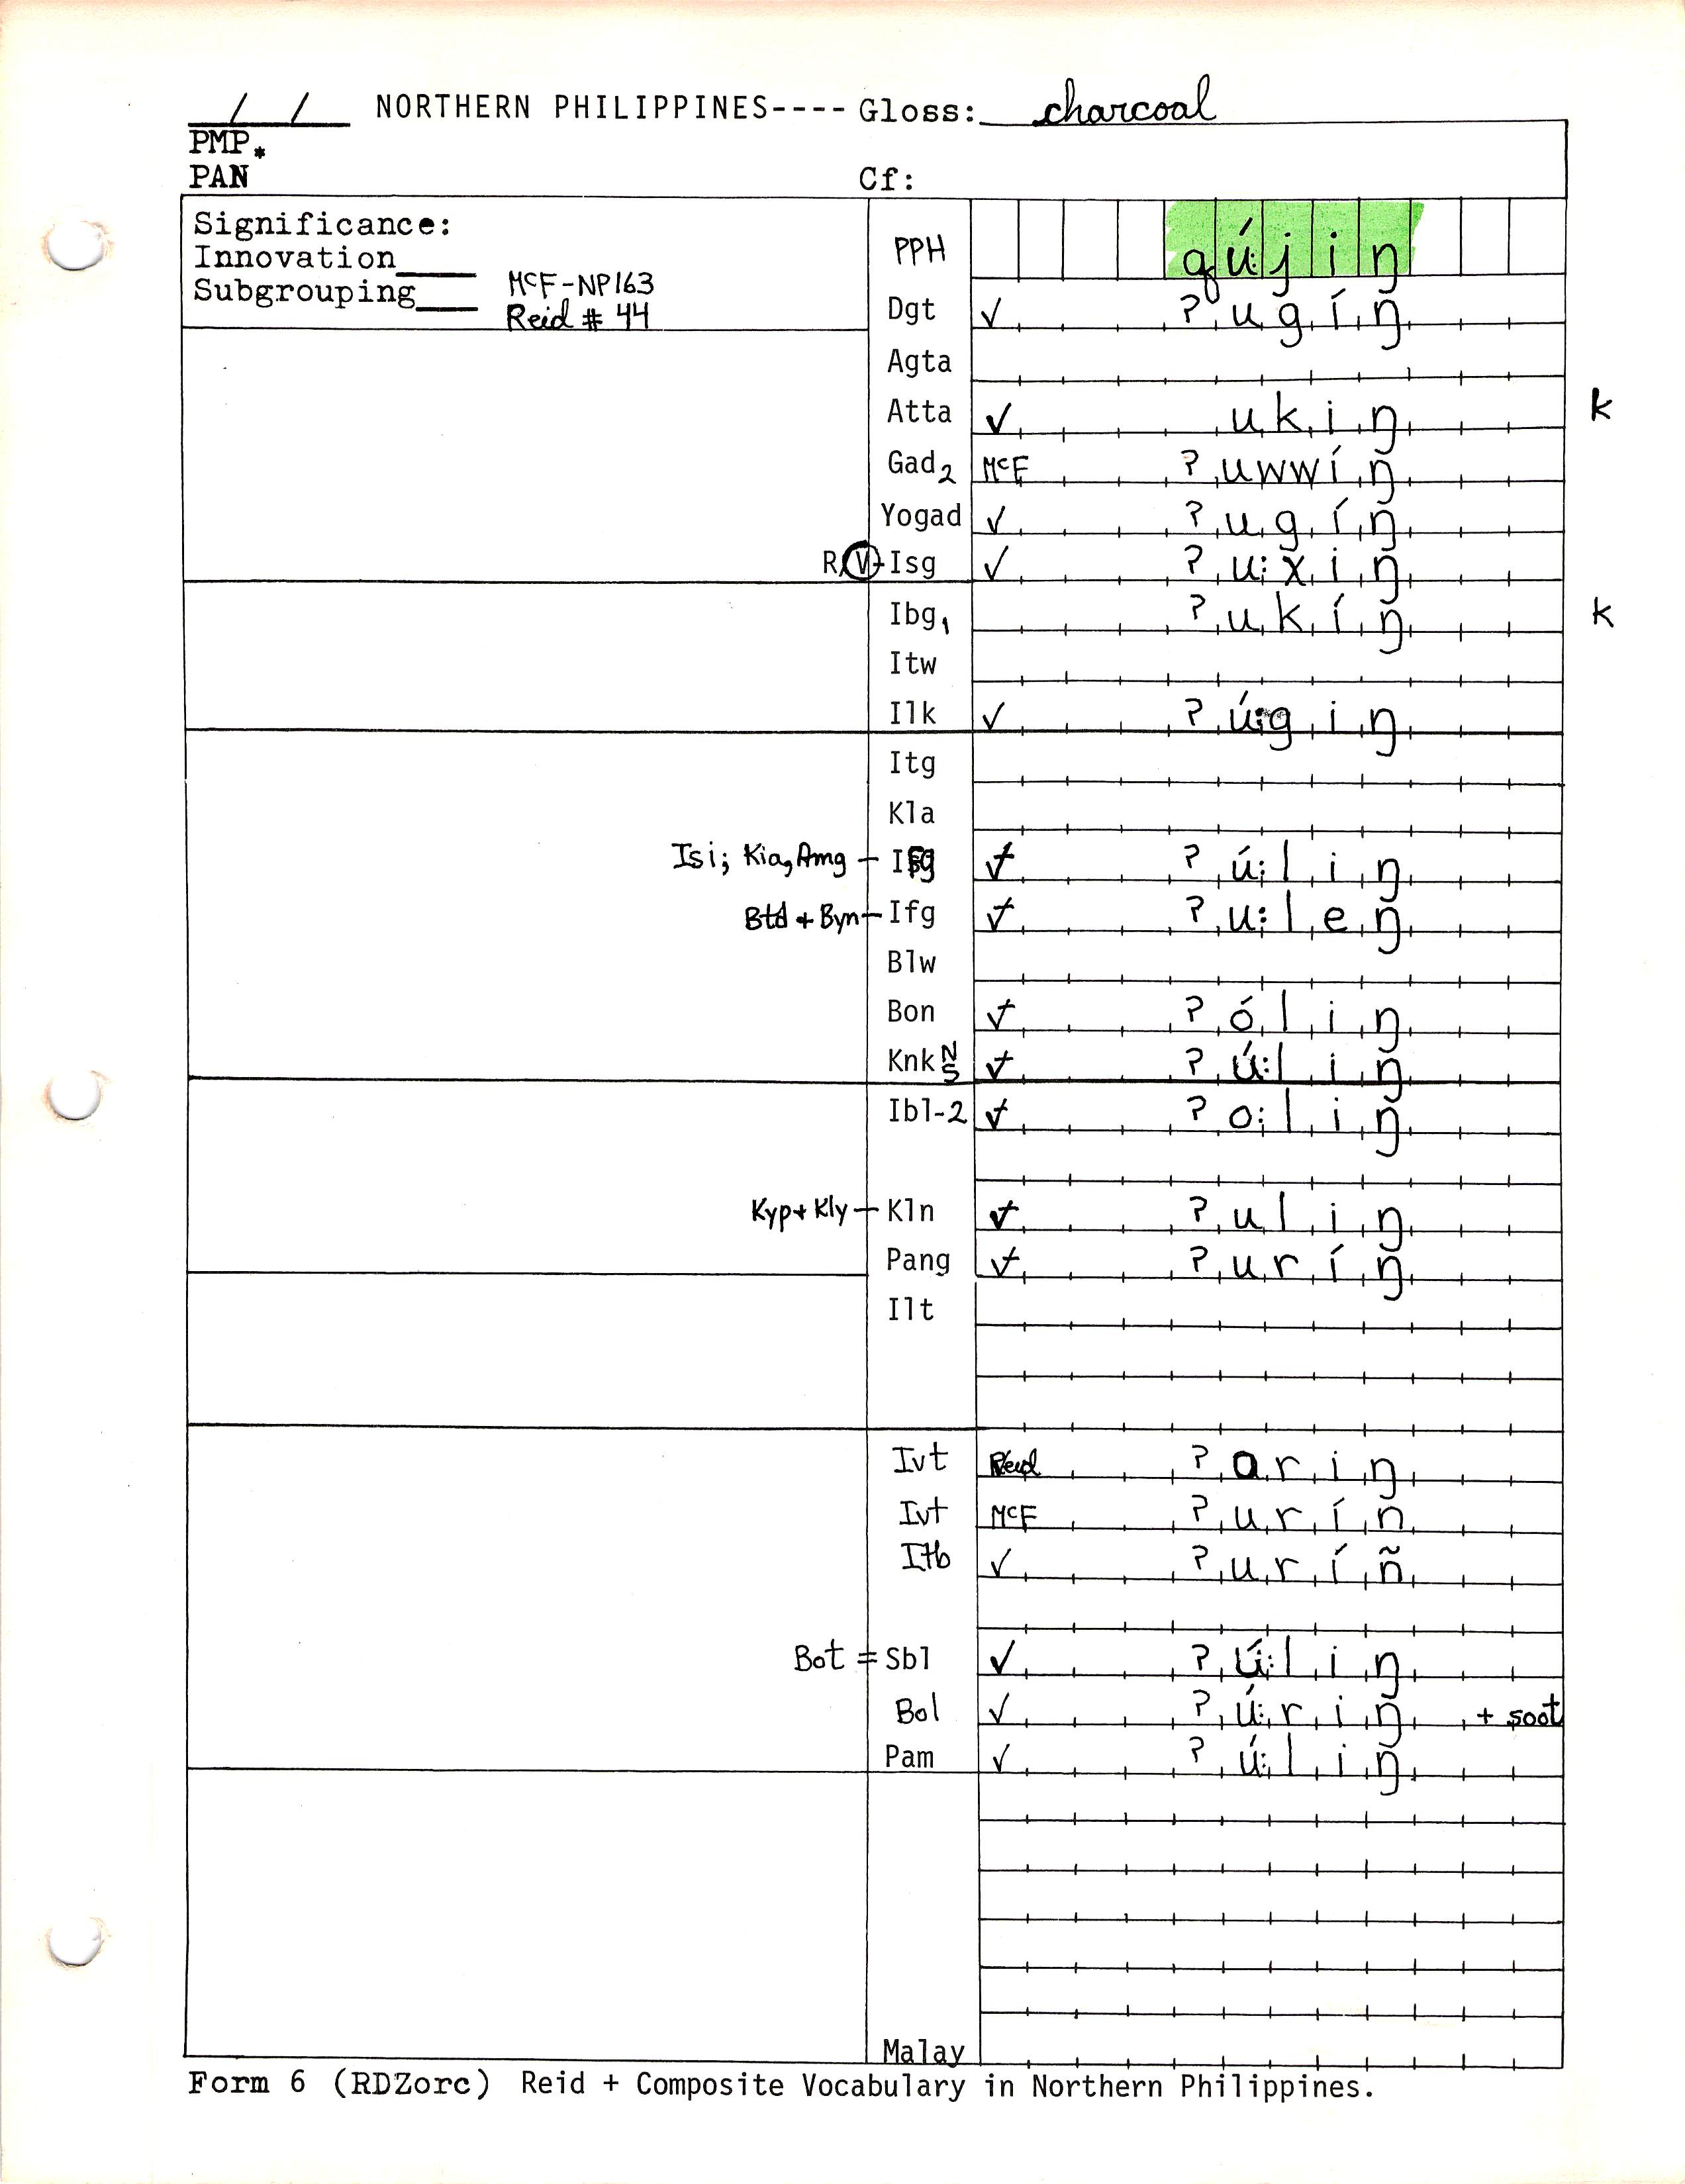 / / NORTHERN PHILIPPINES---- Gloss: charcoal
PMP*
PAN Cf:
Significance:
Innovation
Subgrouping McF-NP163
Reid # 44
PPH qú:jiŋ
Dgt ✓ ʔugíŋ
Agta
Atta ✓ ukiŋ k
Gad2 McF ʔuwwíŋ
Yogad ✓ ʔugíŋ
R,V-Isg ✓ ʔu:xiŋ
Ibg1 ʔukíŋ k
Itw
Ilk ✓ ʔú:giŋ
Itg
Kla
Isi; Kia, Amg - Ifg ✓ ʔú:liŋ
Btd + Byn - Ifg ✓ ʔu:leŋ
Blw
Bon ✓ ʔóliŋ
Knk N S ✓ ʔú:liŋ
Ibl-2 ✓ ʔo:liŋ
Kyp + Kly - Kln ✓ ʔuliŋ
Pang ✓ ʔuríŋ
Ilt
Ivt Reid ʔariŋ
Ivt McF ʔurín
Itb ✓ ʔuríñ
Bot = Sbl ✓ ʔú:liŋ
Bol ✓ ʔú:riŋ + soot
Pam ✓ ʔú:liŋ
Malay
Form 6 (RDZorc) Reid + Composite Vocabulary in Northern Philippines.